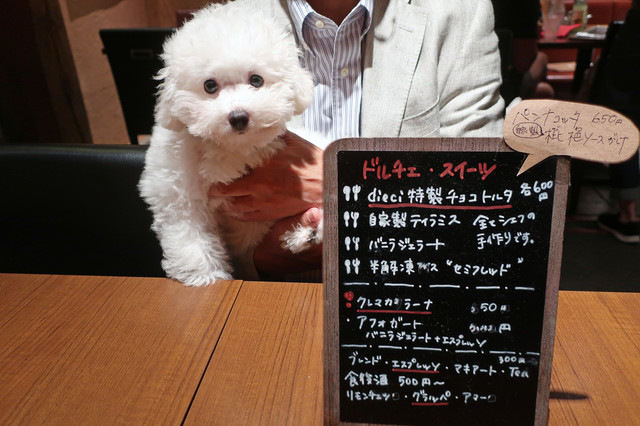 パンナコッタ 650円
ソースがけ
ドルチェ・スイーツ
dieci 特製チョコトルタ 各600円
自家製ティラミス 全てシェフの
バニラジェラート 手作りです。
半解凍アイス "セミフレッド"
クレマカラーナ 50円
・アフォガート 円
バニラジェラート+エスプレッソ
ブレンド・エスプレッソ・マキアート・Tea 300円
食後酒 500円〜
リモンチェッロ・グラッパ・アマーロ